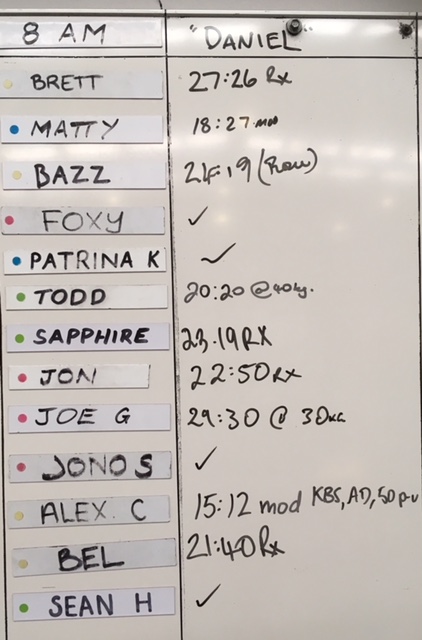 8 AM "DANIEL"
BRETT 27:26 Rx
MATTY 18:27 mod
BAZZ 24:19 (Row)
FOXY ✓
PATRINA K ✓
TODD 20:20 @40kg.
SAPPHIRE 23.19 RX
JON 22:50 RX
JOE G 29:30 @ 30KG
JONO S ✓
ALEX. C 15:12 mod KBS, AD, 50 p-u
BEL 21:40 Rx
SEAN H ✓